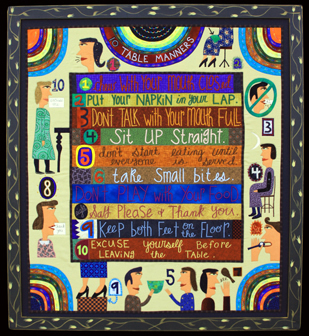 10 TABLE MANNERS
1 Chew WITH YOUR MOUTH Closed
2 PUT YOUR NAPKIN in your LAP.
3 DON'T TALK with YOUR MOUTH FULL
4 Sit UP Straight.
5 don't start eating until
everyone is served
6 take Small bites.
7 DON'T PLAY WITH YOUR FOOD
8 Say Please & Thank You.
9 KEEP both FEET on THE FLOOR.
10 EXCUSE yourself Before
LEAVING the TABLE.
10
8
3
4
9
5